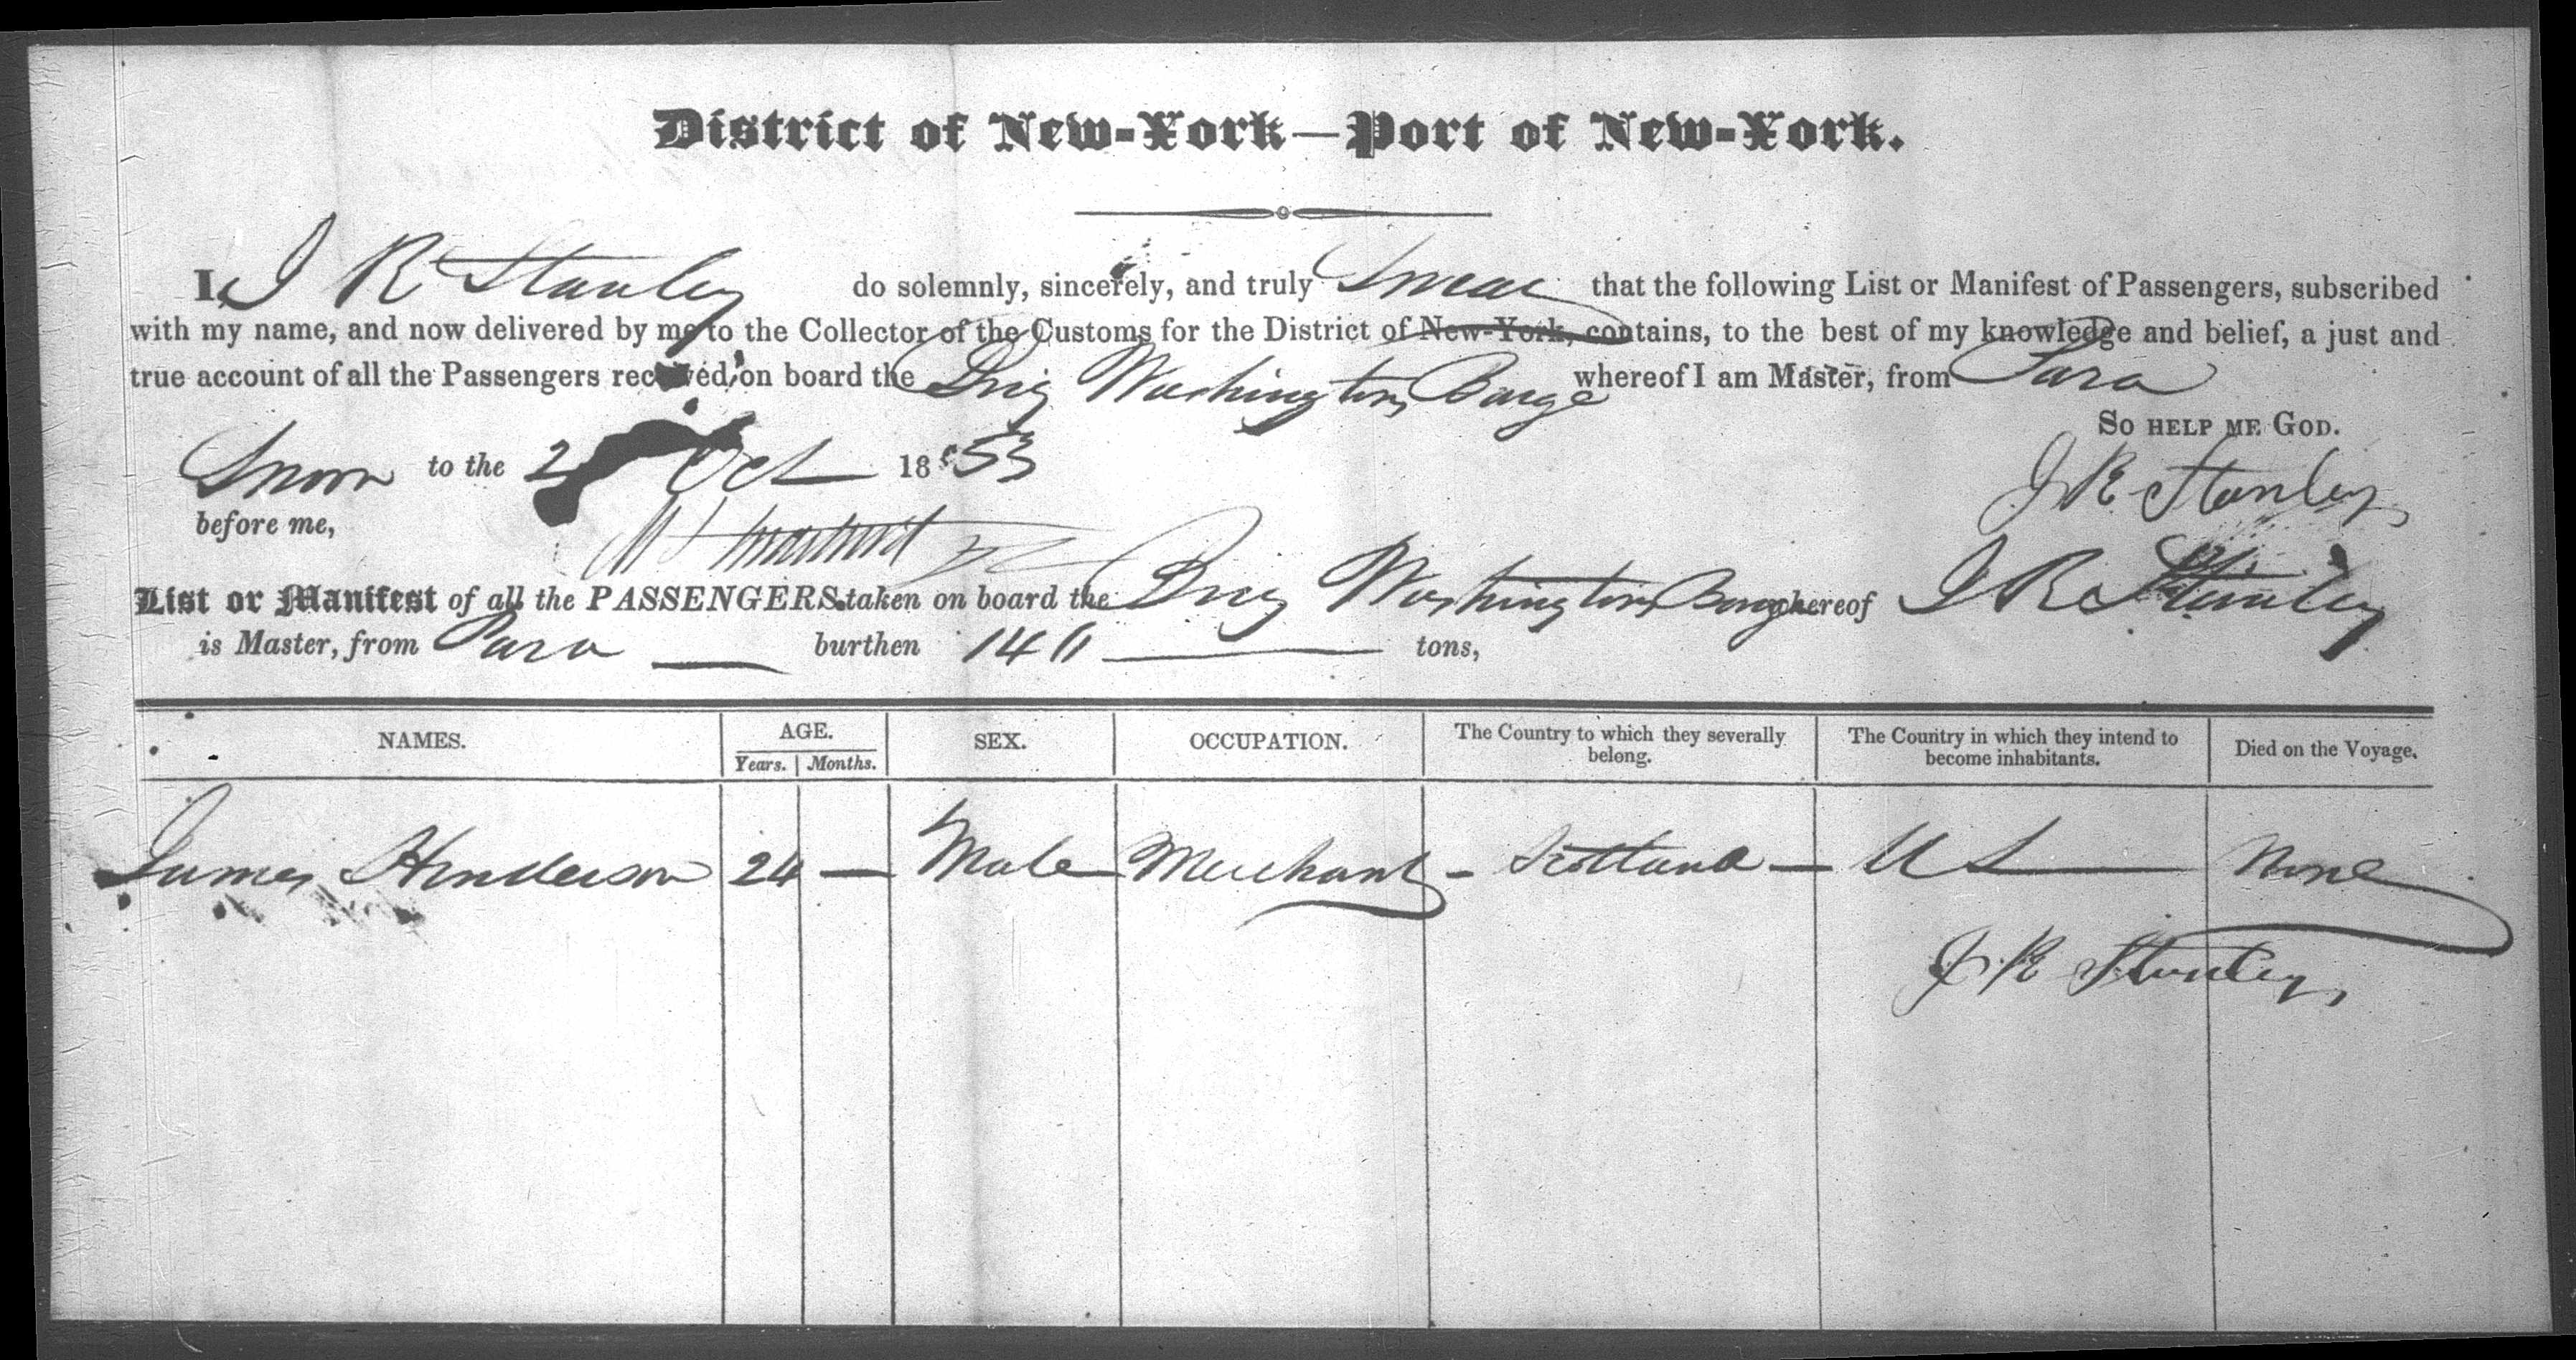 District of New-York—Port of New-York.
I, J R Stanley do solemnly, sincerely, and truly Swear that the following List or Manifest of Passengers, subscribed
with my name, and now delivered by me to the Collector of the Customs for the District of New-York, contains, to the best of my knowledge and belief, a just and
true account of all the Passengers received on board the Brig Washington Barge whereof I am Master, from Para
So help me God.
Sworn to the 2 Oct 1853 J R Stanley
before me,
List or Manifest of all the PASSENGERS taken on board the Brig Washington Barge whereof J R Stanley
is Master, from Para burthen tons,
NAMES. AGE. SEX. OCCUPATION. The Country to which they severally belong. The Country in which they intend to become inhabitants. Died on the Voyage.
Years. Months.
James Henderson 24 — Male Merchant - Scotland — U S None
J R Stanley